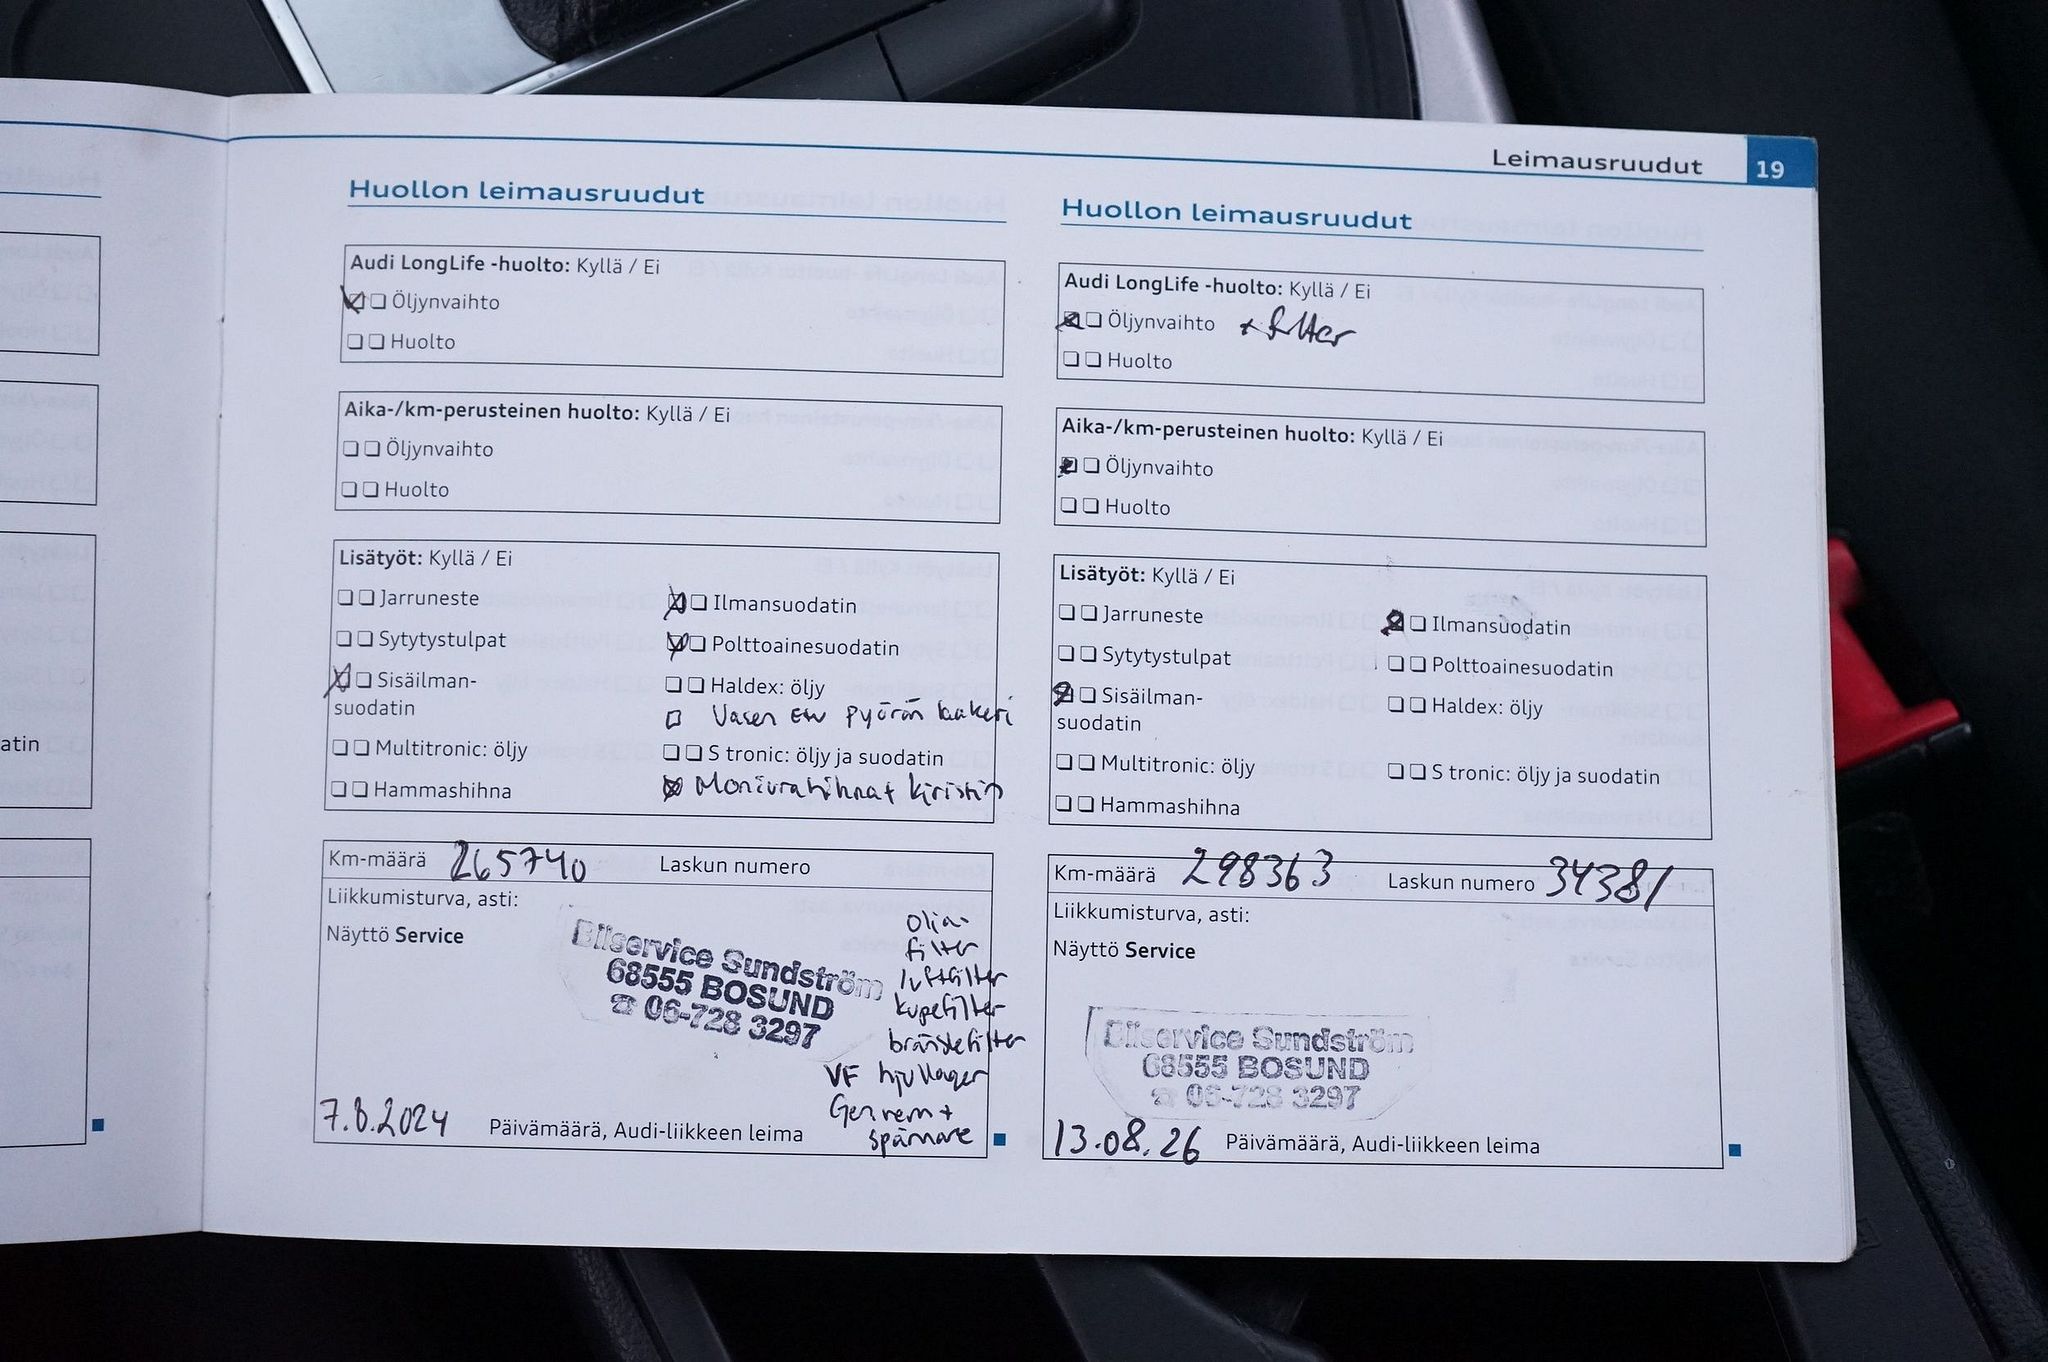 Leimausruudut 19
Huollon leimausruudut
Audi LongLife -huolto: Kyllä / Ei
Öljynvaihto
Huolto
Aika-/km-perusteinen huolto: Kyllä / Ei
Öljynvaihto
Huolto
Lisätyöt: Kyllä / Ei
Jarruneste
Sytytystulpat
Sisäilman-
suodatin
Multitronic: öljy
Hammashihna
Ilmansuodatin
Polttoainesuodatin
Haldex: öljy
Vasen etu pyörän laakeri
S tronic: öljy ja suodatin
Moniurahihnat kiristin
Km-määrä 265740 Laskun numero
Liikkumisturva, asti:
Näyttö Service
Bilservice Sundström
68555 BOSUND
☎ 06-728 3297
olja-
filter
luftfilter
kupefilter
bränslefilter
VF hjullager
Gen rem +
spännare
7.8.2024 Päivämäärä, Audi-liikkeen leima
Huollon leimausruudut
Audi LongLife -huolto: Kyllä / Ei
Öljynvaihto + filter
Huolto
Aika-/km-perusteinen huolto: Kyllä / Ei
Öljynvaihto
Huolto
Lisätyöt: Kyllä / Ei
Jarruneste
Sytytystulpat
Sisäilman-
suodatin
Multitronic: öljy
Hammashihna
Ilmansuodatin
Polttoainesuodatin
Haldex: öljy
S tronic: öljy ja suodatin
Km-määrä 298363 Laskun numero 34381
Liikkumisturva, asti:
Näyttö Service
Bilservice Sundström
68555 BOSUND
☎ 06-728 3297
13.08.26 Päivämäärä, Audi-liikkeen leima
atin